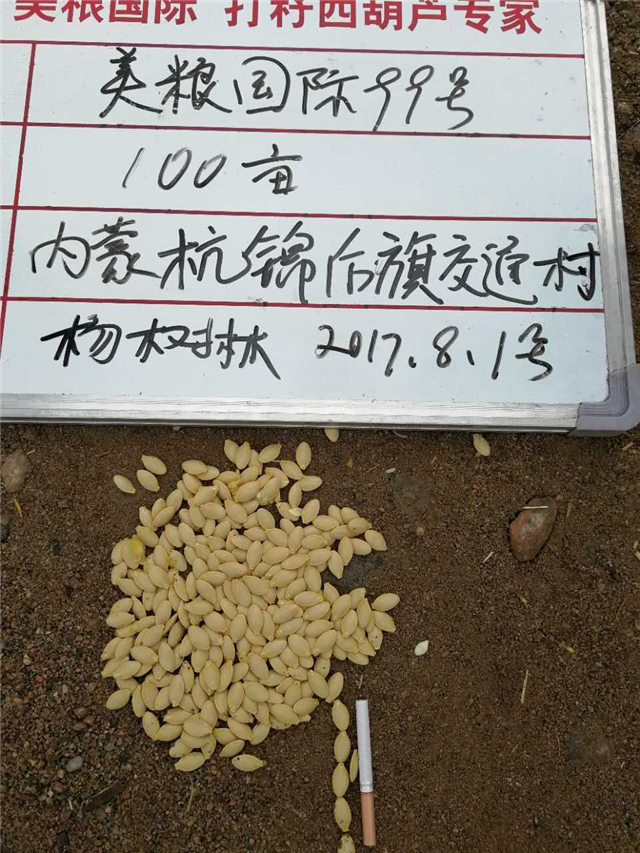 美粮国际 打籽西葫芦专家
美粮国际99号
100亩
内蒙杭锦后旗交通村
杨权林 2017.8.1号